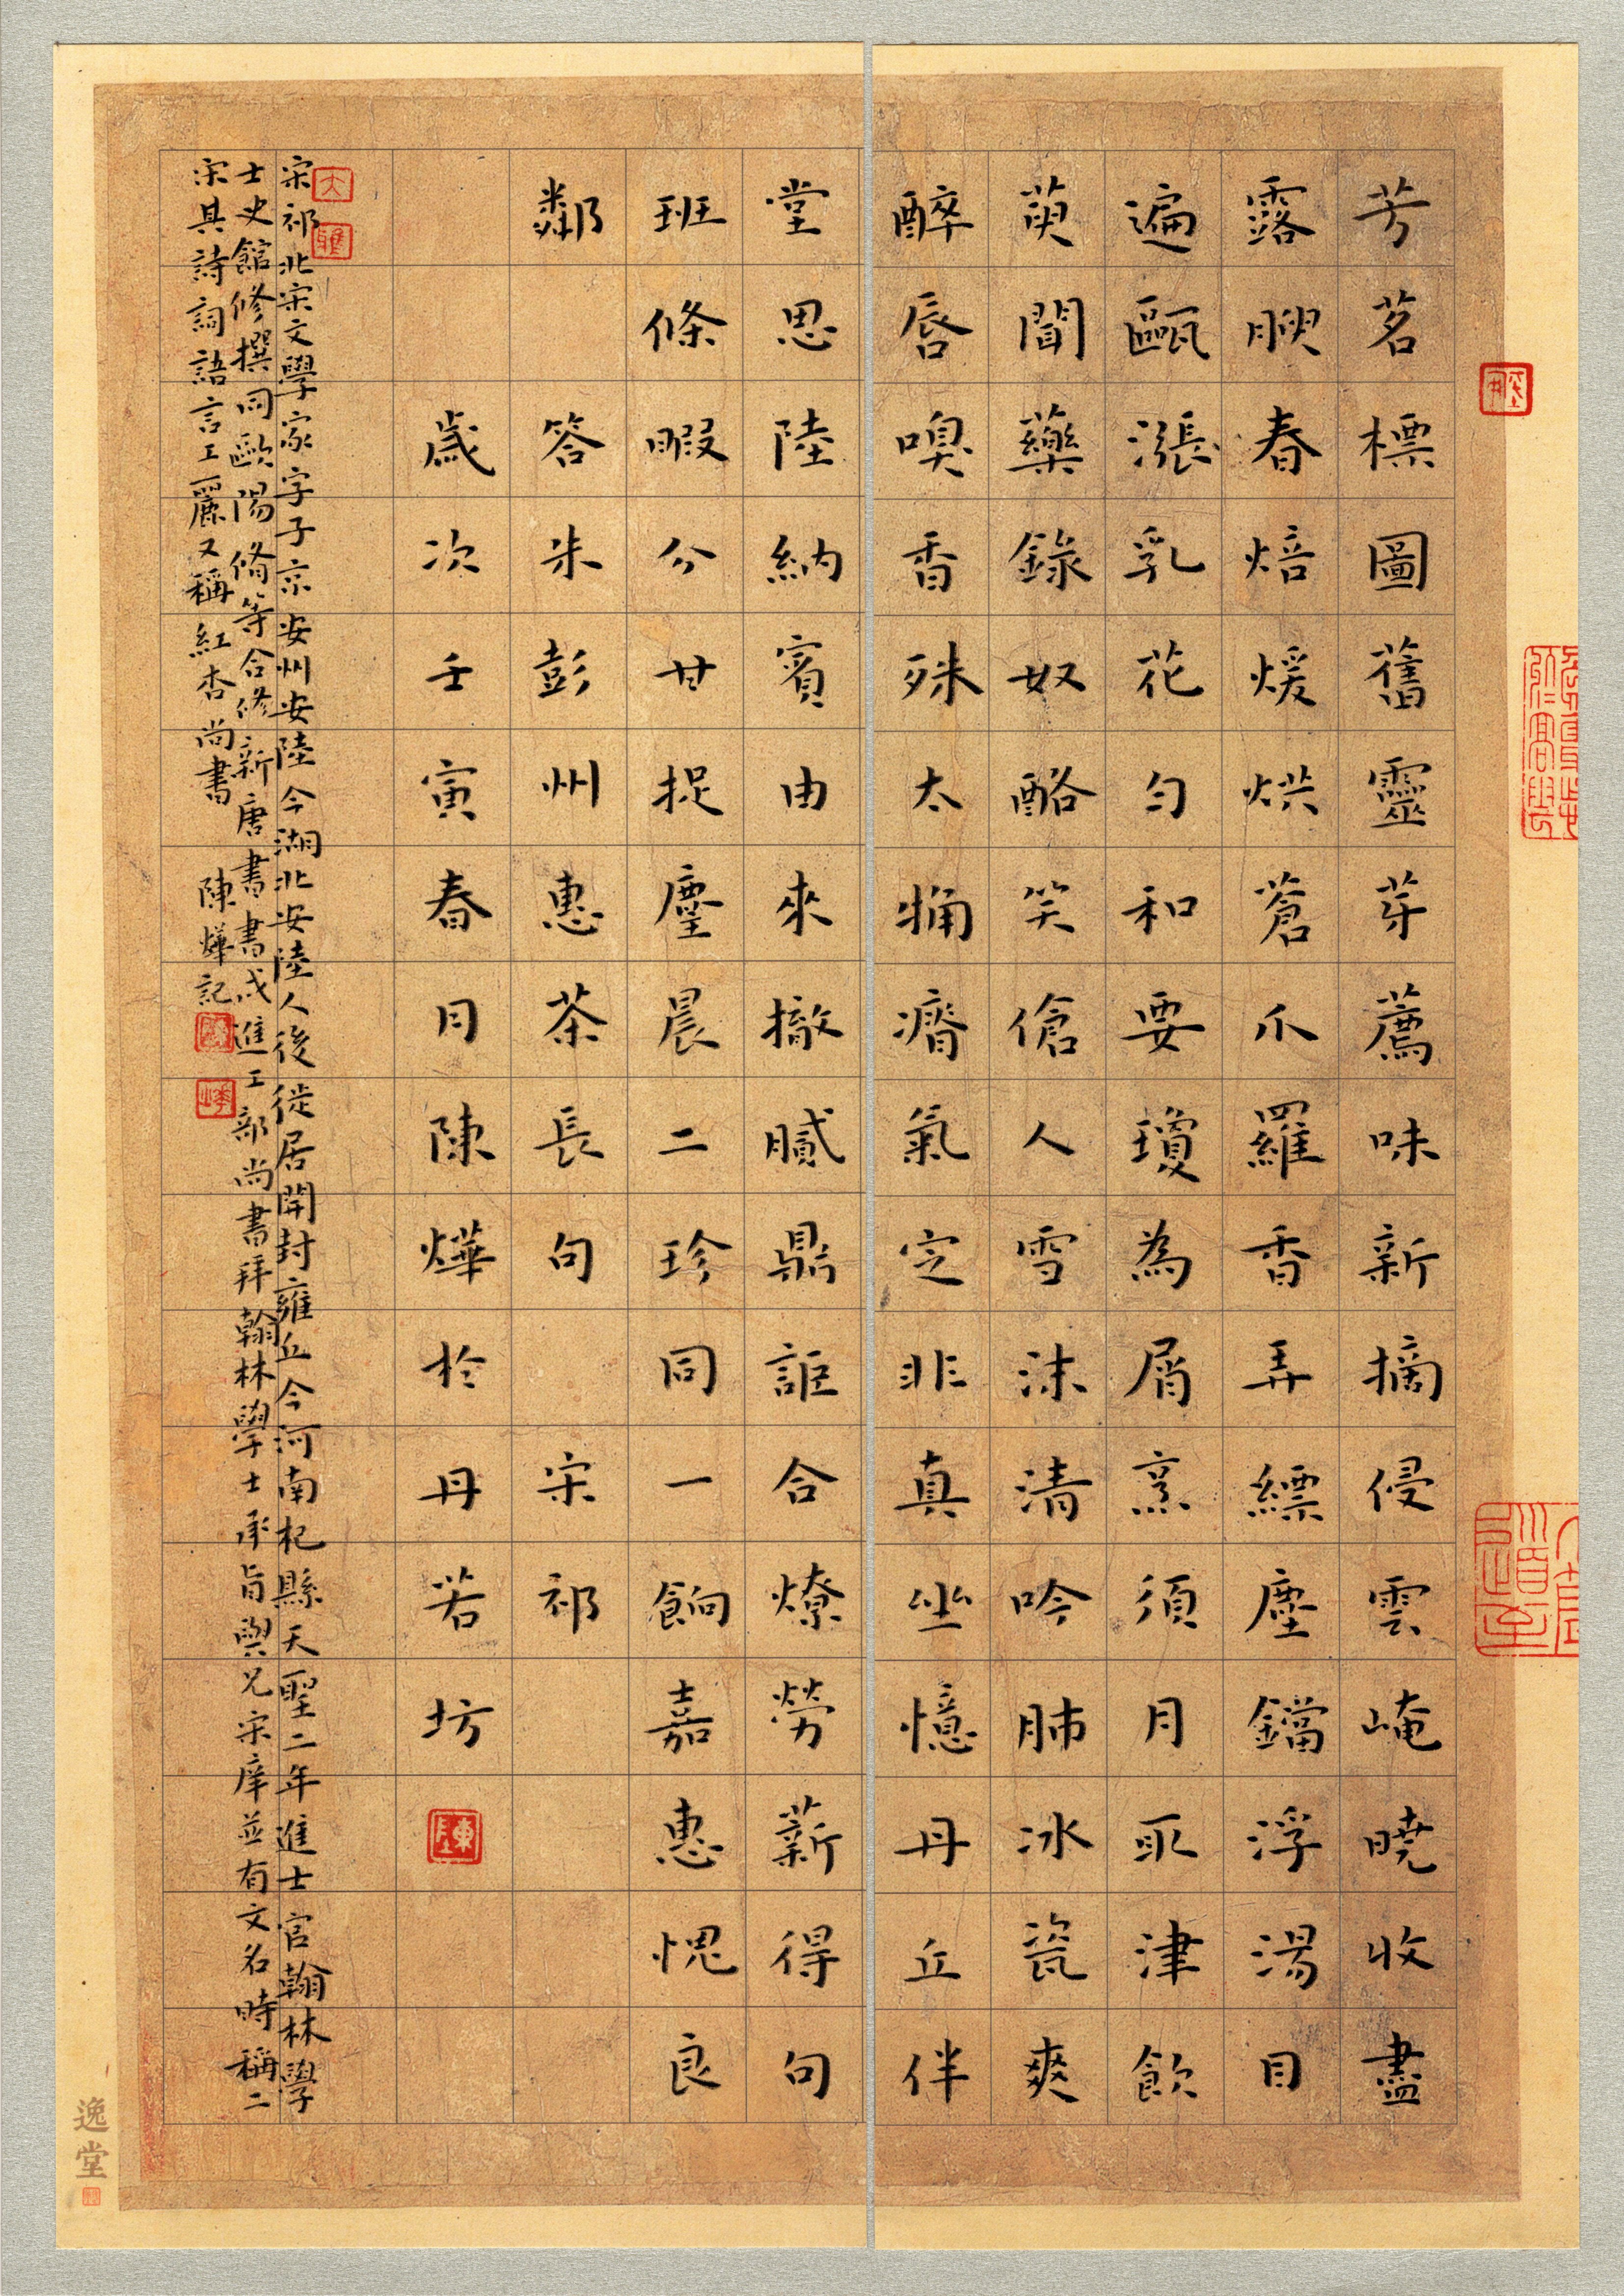 芳茗標圖舊靈芽薦味新摘侵雲崦曉收盡
露腴春焙煖烘蒼爪羅香弄縹塵鐺浮湯目
遍甌漲乳花勻和要瓊為屑烹須月取津飲
萸聞藥錄奴酪笑傖人雪沫清吟肺冰瓷爽
醉唇嗅香殊太觕瘠氣定非真坐憶丹丘伴
堂思陸納賓由來撤膩鼎詎合燎勞薪得句
班條暇分甘捉麈晨二珍同一餉嘉惠愧良
鄰
答朱彭州惠茶長句 宋祁
歲次壬寅春月陳燁於丹若坊
宋祁北宋文學家字子京安州安陸今湖北安陸人後徙居開封雍丘今河南杞縣天聖二年進士官翰林學
士史館修撰同歐陽脩等合修新唐書書成進工部尚書拜翰林學士承旨與兄宋庠並有文名時稱二
宋其詩詞語言工麗又稱紅杏尚書 陳燁記
逸堂